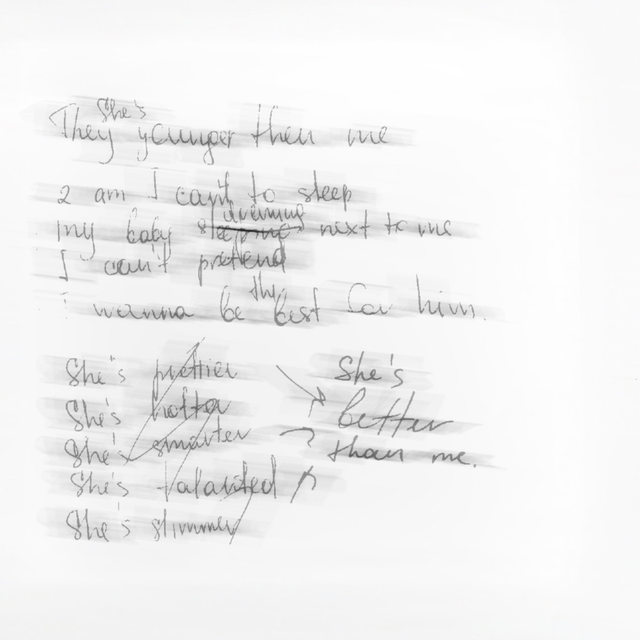 She's
They younger then me
2 am I can't to sleep
dreaming
my baby sleeping next to me
I can't pretend
the
I wanna be best for him.
She's prettier
She's hotter
She's smarter
She's talanted
She's slimmer
She's
better
than me.